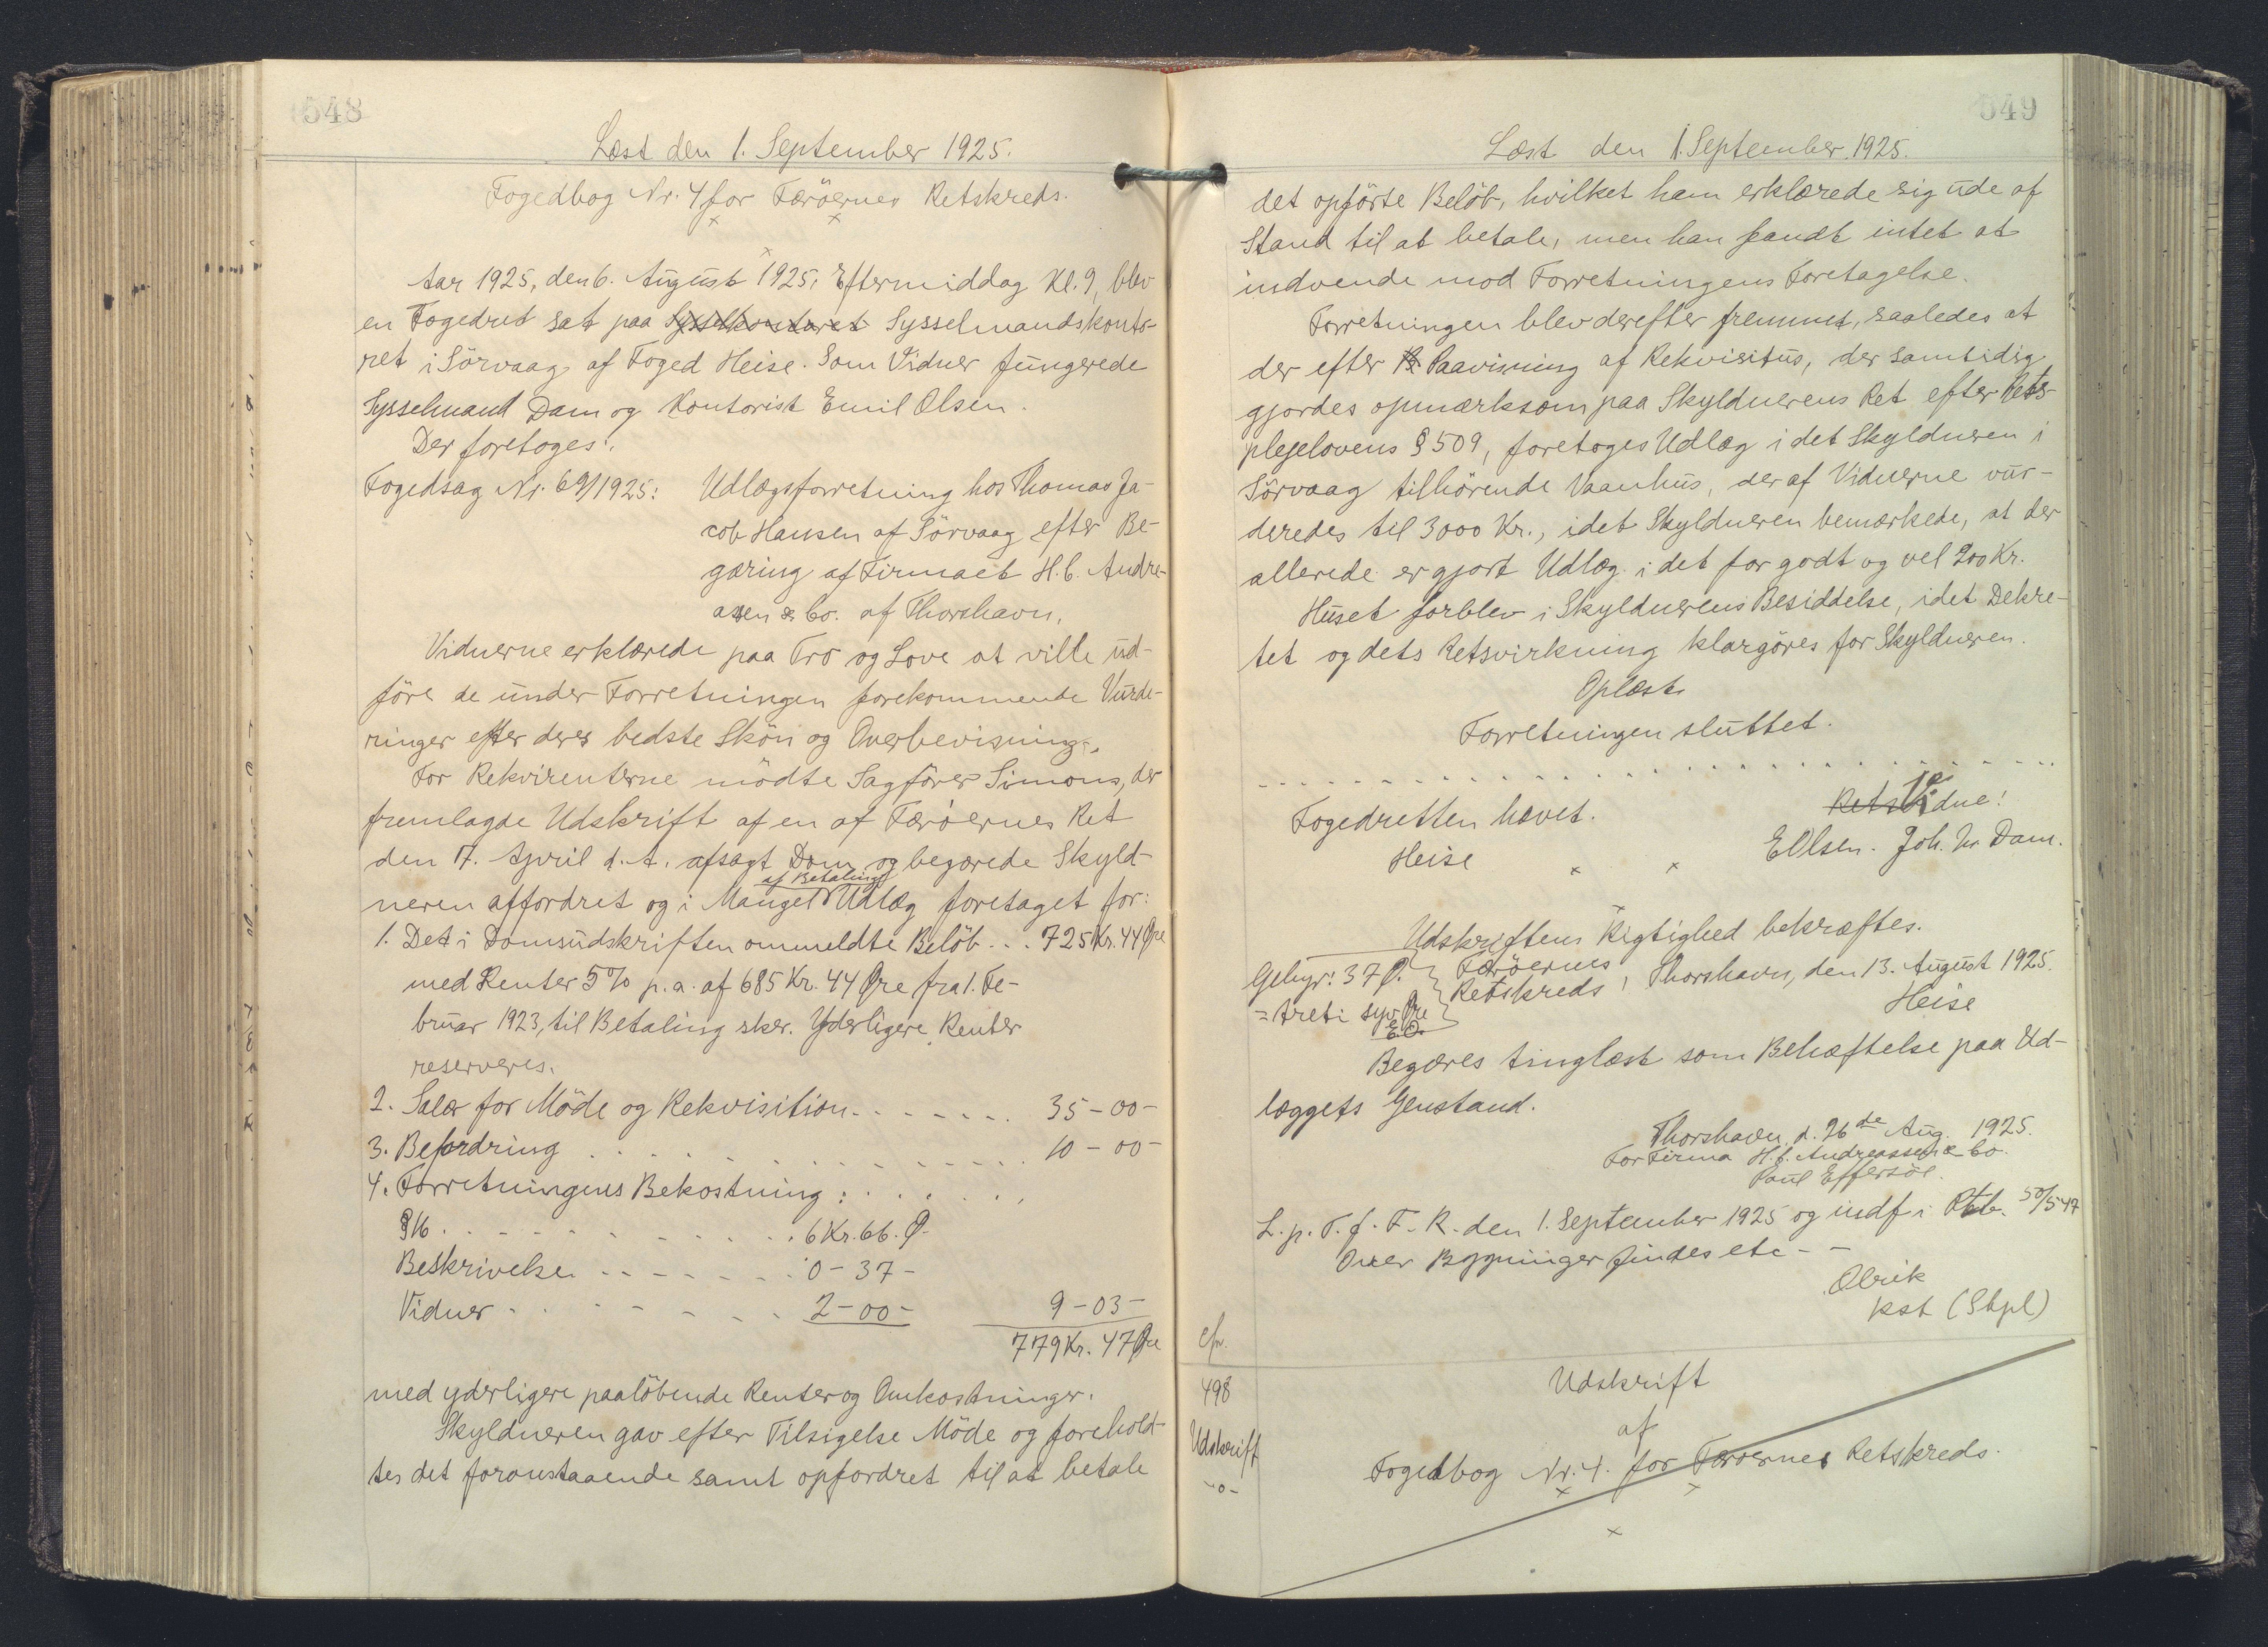 548
Læst den 1. September 1925.
Fogedbog Nr. 4 for Færöernes Retskreds.
Aar 1925, den 6. August 1925, Eftermiddag Kl. 9, blev
en Fogedret sat paa Sysselkontoret Sysselmandskonto-
ret i Sörvaag af Foged Heise. Som Vidner fungerede
Sysselmand Dam og Kontorist Emil Olsen.
Der foretoges:
Fogedsag Nr. 69/1925: Udlægsforretning hos Thomas Ja-
cob Hansen af Sörvaag efter Be-
gæring af Firmaet H.C. Andre-
asen & Co. af Thorshavn.
Vidnerne erklærede paa Tro og Love at ville ud-
före de under Forretningen forekommende Vurde-
ringer efter deres bedste Skön og Overbevisning.
For Rekvirenterne mödte Sagförer Simons, der
fremlagde Udskrift af en af Færöernes Ret
den 17. April d. A. afsagt Dom og begærede Skyld-
neren affordret og i Mangel af Betaling Udlæg foretaget for:
1. Det i Domsudskriften ommeldte Belöb . . . 725 Kr. 44 Øre
med Renter 5% p.a. af 685 Kr. 44 Øre fra 1. Fe-
bruar 1923, til Betaling sker. Yderligere Renter
reserveres.
2. Salær for Möde og Rekvisition . . . . . . . 35 - 00 -
3. Befordring . . . . . . . . . . . . . 10 - 00 -
4. Forretningens Bekostning: . . . . . .
§ 16 . . . . . . . . . . . 6 Kr. 66. Ø.
Beskrivelse . . . . . . . 0 - 37 -
Vidner . . . . . . . . 2 - 00 - 9 - 03 -
779 Kr. 47 Øre
med yderligere paalöbende Renter og Omkostninger.
Skyldneren gav efter Tilsigelse Möde og forehold-
tes det foranstaaende samt opfordret til at betale
549
Læst den 1. September 1925.
det opförte Belöb, hvilket han erklærede sig ude af
Stand til at betale, men han fandt intet at
indvende mod Forretningens Foretagelse.
Forretningen blev derefter fremmet, saaledes at
der efter Paavisning af Rekvisitus, der samtidig
gjordes opmærksom paa Skyldnerens Ret efter Rets-
plejelovens § 509, foretoges Udlæg i det Skyldneren i
Sörvaag tilhörende Vaanhus, der af Vidnerne vur-
deredes til 3000 Kr., idet Skyldneren bemærkede, at der
allerede er gjort Udlæg i det for godt og vel 200 Kr.
Huset forblev i Skyldnerens Besiddelse, idet Dekre-
tet og dets Retsvirkning klargöres for Skyldneren.
Oplæst.
Forretningen sluttet.
Fogedretten hævet. Retsvidne:
Heise EOlsen. Joh. Dam.
Udskriftens Rigtighed bekræftes.
Gebyr: 37 Ø. Færöernes
= treti syv Øre Retskreds, Thorshavn, den 13. August 1925.
E.O. Heise
Begæres tinglæst som Behæftelse paa Ud-
læggets Genstand.
Thorshavn d. 26de Aug. 1925.
For Firma H.C. Andreassen & Co.
Poul Effersöe.
L. p. T. f. F. R. den 1. September 1925 og indf i Rtb. 50/547
Over Bygninger findes etc - -
Olrik
kst (Stpl)
cfr.
498
Udskrift
-o-
Udskrift
af
Fogedbog Nr. 4. for Færöernes Retskreds.